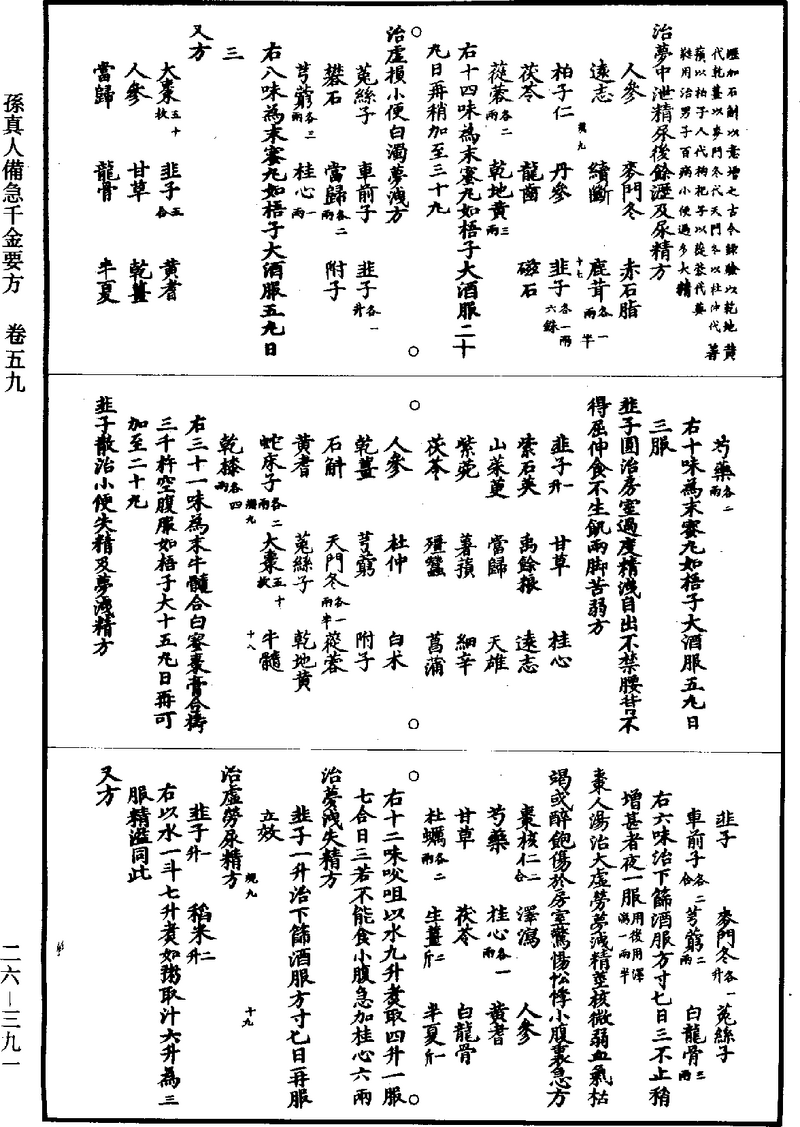 孫真人備急千金要方 卷五九
二六—三九一
壓加石斛以意增之古今錄驗以乾地黃
代乾薑以麥門冬代天門冬以杜仲代著
蕷以柏子人代枸杞子以蓯蓉代萸
鞋用治男子百病小便過多失精
治夢中泄精尿後餘瀝及尿精方
人參 麥門冬 赤石脂
遠志 續斷 鹿茸各一兩半
柏子仁 丹參 韭子各一兩六銖
茯苓 龍齒 磁石
蓯蓉各二兩 乾地黃三兩
右十四味為末蜜丸如梧子大酒服二十
丸日再稍加至三十丸
治虛損小便白濁夢洩方
菟絲子 車前子 韭子各一升
礬石 當歸各二兩 附子
芎藭各三兩 桂心一兩
右八味為末蜜丸如梧子大酒服五丸日
三
又方
大棗五十枚 韭子五合 黃耆
人參 甘草 乾薑
當歸 龍骨 半夏
芍藥各二兩
右十味為末蜜丸如梧子大酒服五丸日
三服
韭子圓治房室過度精洩自出不禁腰背不
得屈伸食不生肌兩腳苦弱方
韭子一升 甘草 桂心
紫石英 禹餘糧 遠志
山茱萸 當歸 天雄
紫菀 薯蕷 細辛
茯苓 殭蠶 菖蒲
人參 杜仲 白朮
乾薑 芎藭 附子
石斛 天門冬各一兩半 蓯蓉
黃耆 菟絲子 乾地黃
蛇床子各二兩 大棗五十枚 牛髓
乾漆各四兩
右三十一味為末牛髓合白蜜棗膏合擣
三千杵空腹服如梧子大十五丸日再可
加至二十丸
韭子散治小便失精及夢洩精方
韭子 麥門冬各一升 菟絲子
車前子各二合 芎藭二兩 白龍骨三兩
右六味治下篩酒服方寸匕日三不止稍
增甚者夜一服用後用澤瀉一兩半
棗人湯治大虛勞夢洩精莖核微弱血氣枯
竭或醉飽傷於房室驚惕忪悸小腹裏急方
棗核仁二合 澤瀉 人參
芍藥 桂心各一兩 黃耆
甘草 茯苓 白龍骨
牡蠣各二兩 生薑二斤 半夏一升
右十二味㕮咀以水九升煮取四升一服
七合日三若不能食小腹急加桂心六兩
治夢洩失精方
韭子一升治下篩酒服方寸匕日再服
立效
治虛勞尿精方
韭子二升 稻米三升
右以水一斗七升煮如粥取汁六升為三
服精溢同此
又方